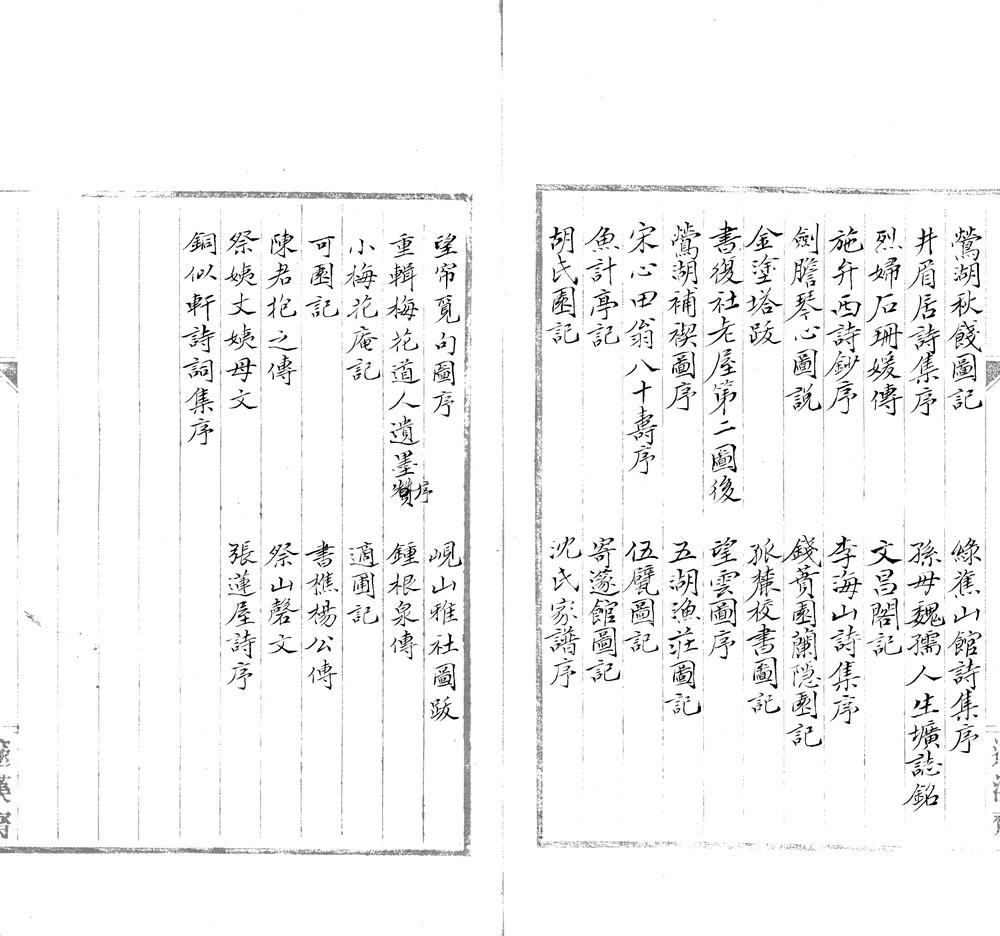 鶯湖秋餞圖記
綠蕉山館詩集序
井眉居詩集序
孫母魏孺人生壙誌銘
烈婦石珊媛傳
文昌閣記
施弁西詩鈔序
李海山詩集序
劍膽琴心圖説
錢蕢園蘭隠園記
金塗塔跋
孤麓校書圖記
書復社老屋第二圖後
望雲圖序
鶯湖補禊圖序
五湖漁莊圖記
宋心田翁八十壽序
伍甓圖記
魚計亭記
寄蘧館圖記
胡氏園記
沈氏家譜序
望帘覓句圖序
峴山雅社圖跋
重輯梅花道人遺墨序
鍾根泉傳
小梅花庵記
適圃記
可園記
書樵楊公傳
陳君抱之傳
祭山磬文
祭姨丈姨母文
張蓮屋詩序
銅似軒詩詞集序